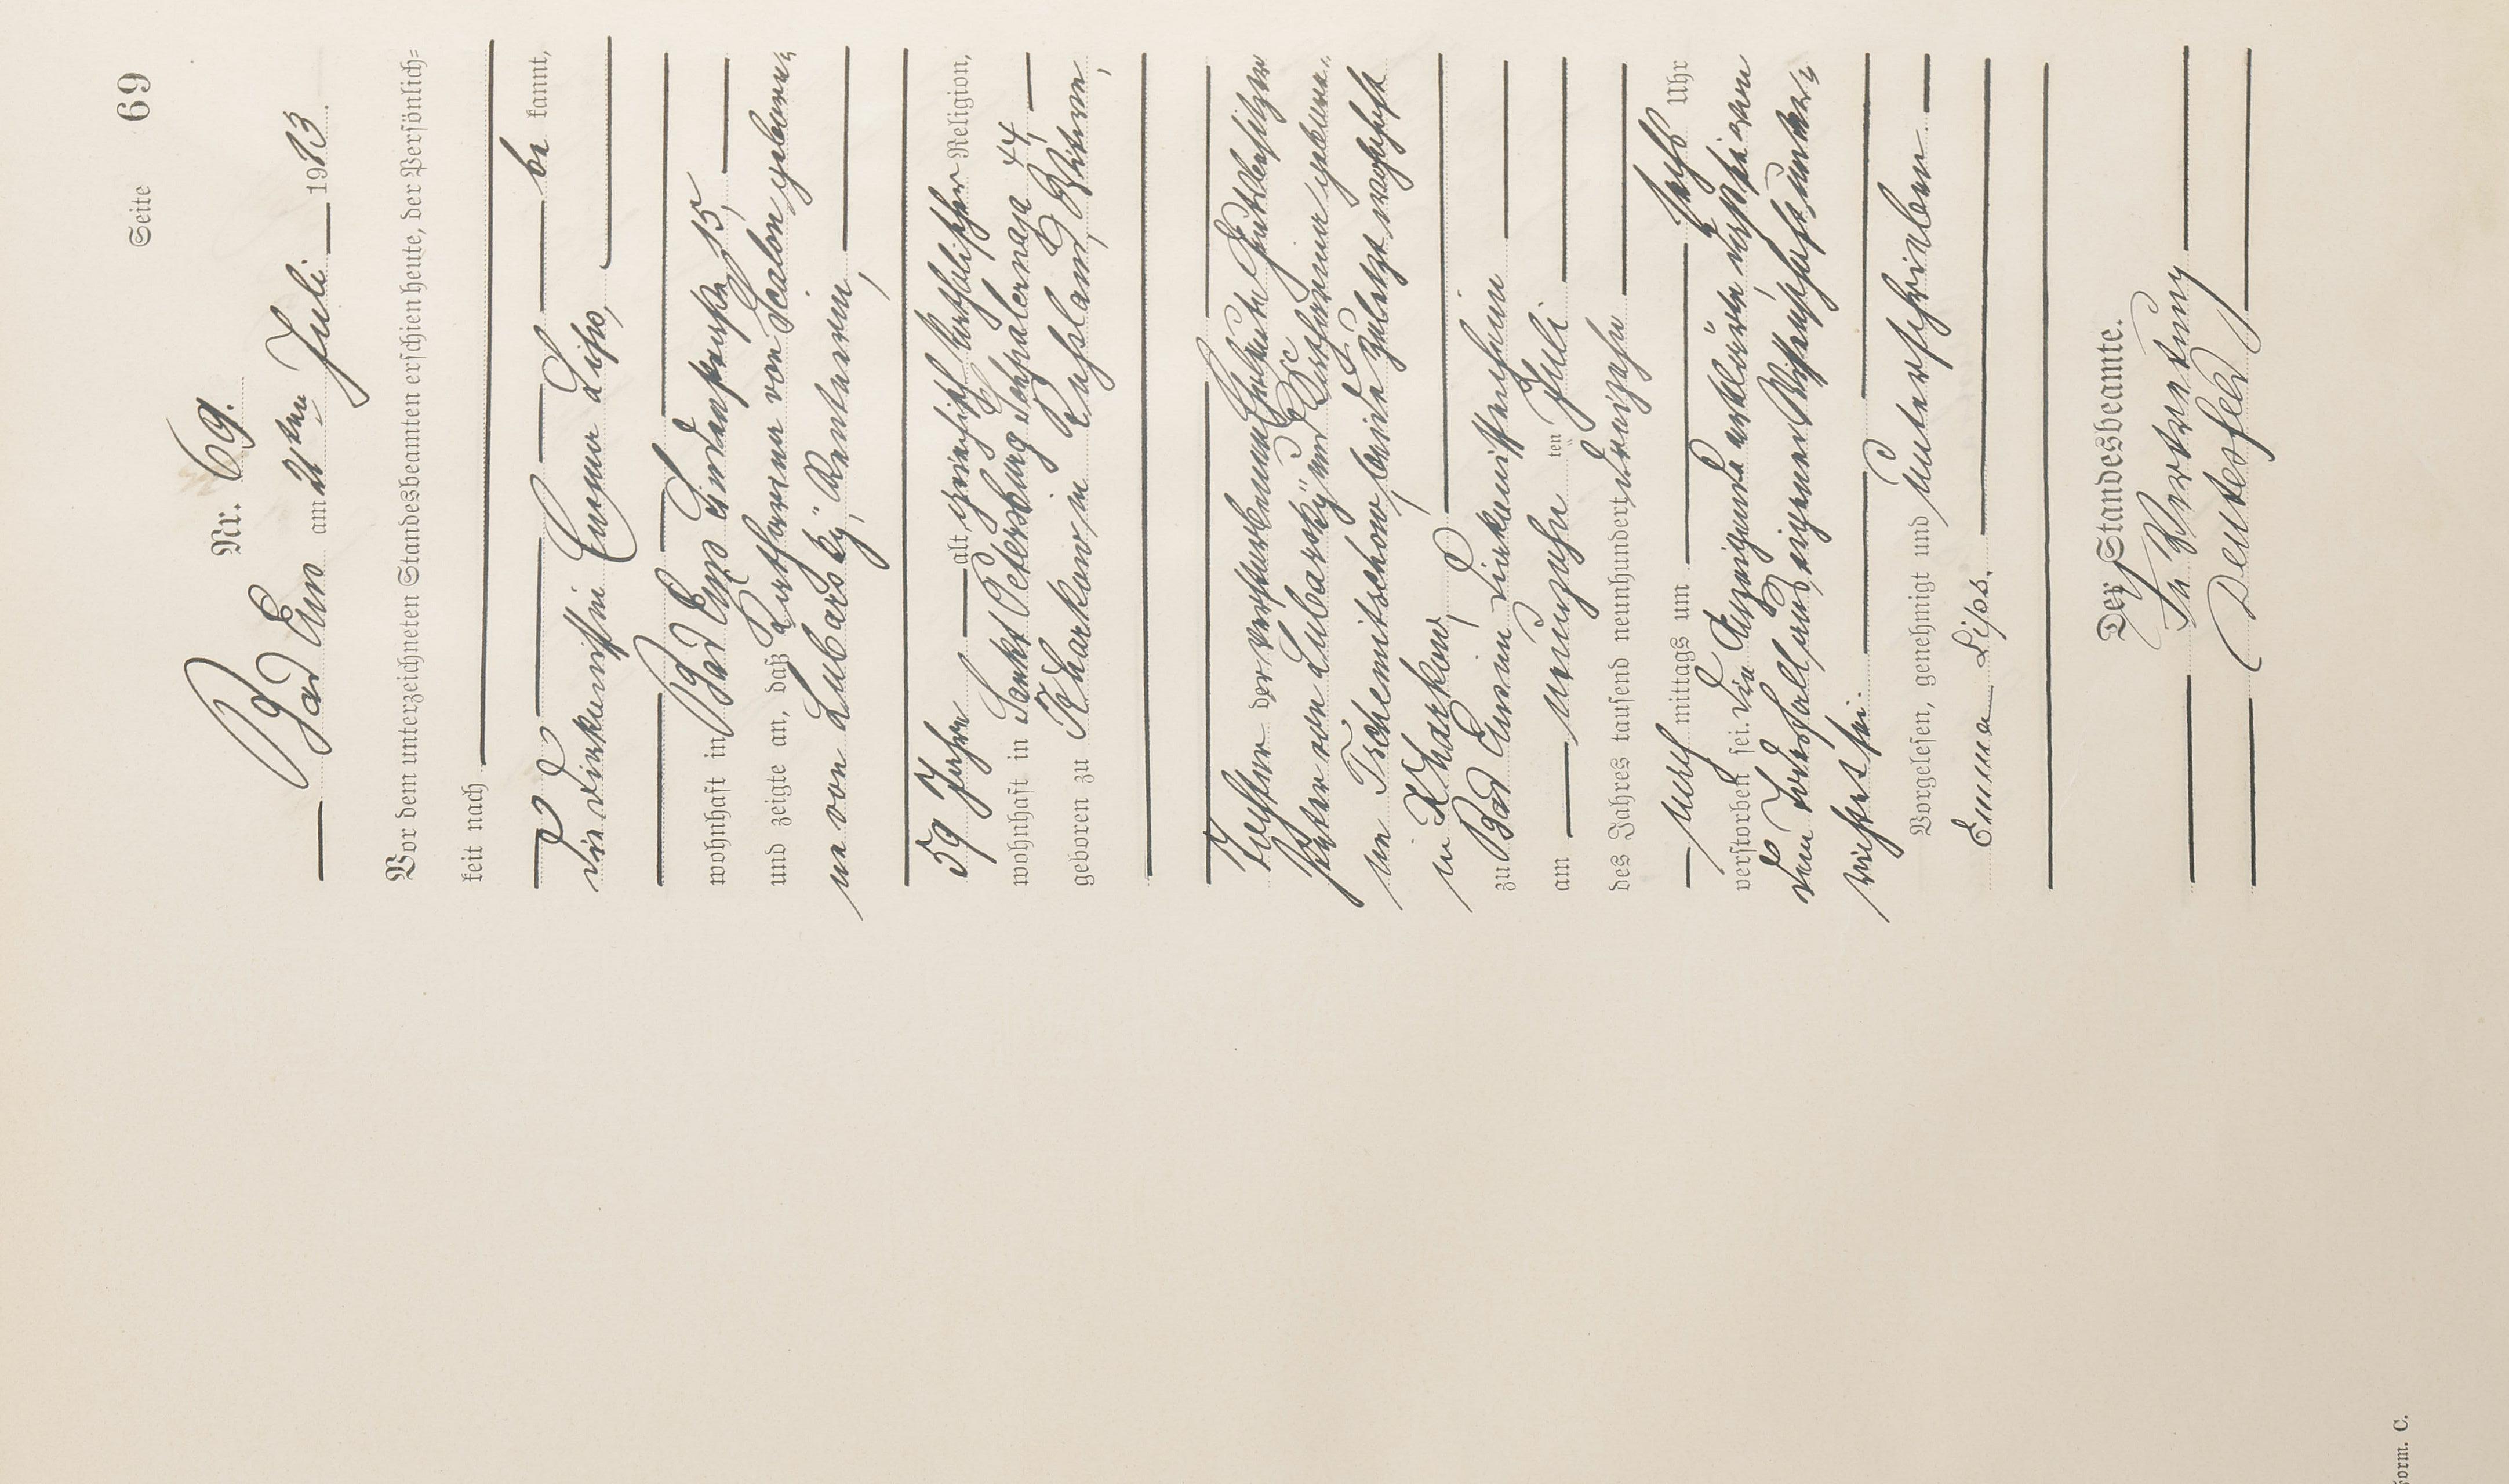 Seite 69
Nr. 69.
Bad Ems am 21ten Juli 1913.
Vor dem unterzeichneten Standesbeamten erschien heute, der Persönlich-
keit nach
be kannt,
die Diakonissin Emma Lipps,
wohnhaft in Bad Ems Lindenstraße 15,
und zeigte an, daß Katharina von Scalon gebore-
ne von Lubarsky, Rentnerin,
59 Jahre alt, griechisch katholischer Religion,
wohnhaft in Sankt Petersburg 44,
geboren zu Kharkow in Russland, Witwe,
Tochter der verstorbenen Eheleute Gutsbesitzer
Peter von Lubarsky und Katharina gebore-
ne Tschemitschow, beide zuletzt wohnhaft
in Kharkow,
zu Bad Ems im Diakonissenheim
am neunzehnten Juli
des Jahres tausend neunhundert dreizehn
nach mittags um sechs Uhr
verstorben sei. Die Anzeigende erklärte, daß sie von
dem Todesfall aus eigener Wissenschaft unter-
richtet sei.
Vorgelesen, genehmigt und unterschrieben
Emma Lipps.
Der Standesbeamte.
In Vertretung
Deutesfeld
Form. C.